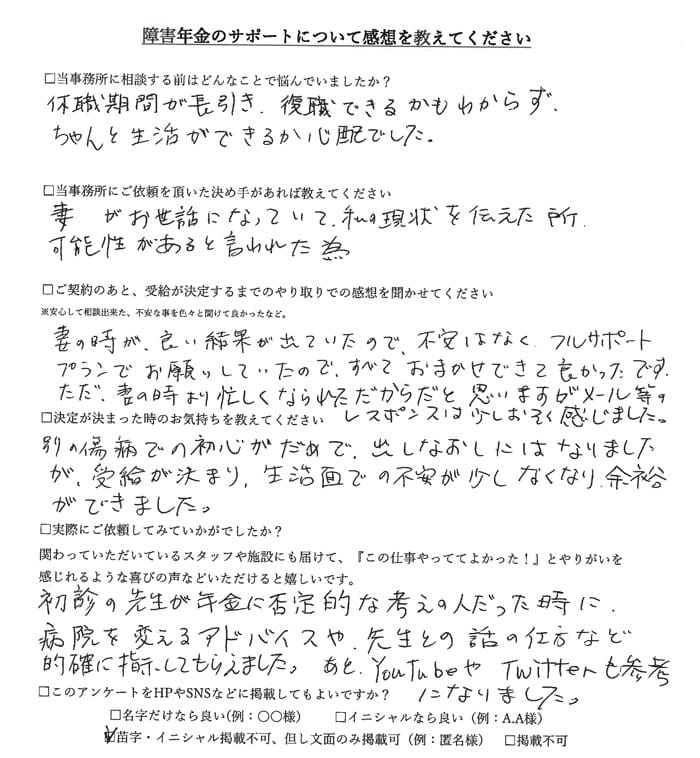 障害年金のサポートについて感想を教えてください
□当事務所に相談する前はどんなことで悩んでいましたか？
休職期間が長引き、復職できるかもわからず、
ちゃんと生活ができるか心配でした。
□当事務所にご依頼を頂いた決め手があれば教えてください
妻 がお世話になっていて、私の現状を伝えた所、
可能性があると言われた為
□ご契約のあと、受給が決定するまでのやり取りでの感想を聞かせてください
※安心して相談出来た、不安な事を色々と聞けて良かったなど。
妻の時が、良い結果が出ていたので、不安はなく、フルサポート
プランでお願いしていたので、すべておまかせできて良かったです。
ただ、妻の時より忙しくなられただからだと思いますがメール等の
レスポンスは少しおそく感じました。
□決定が決まった時のお気持ちを教えてください
別の傷病での初心がだめで、出しなおしにはなりました
が、受給が決まり、生活面での不安が少しなくなり、余裕
ができました。
□実際にご依頼してみていかがでしたか？
関わっていただいているスタッフや施設にも届けて、『この仕事やっててよかった！』とやりがいを
感じれるような喜びの声などいただけると嬉しいです。
初診の先生が年金に否定的な考えの人だった時に、
病院を変えるアドバイスや、先生との話の仕方など
的確に指示してもらえました。 あと、YouTubeや Twitterも参考
になりました。
□このアンケートをHPやSNSなどに掲載してもよいですか？
□名字だけなら良い(例：〇〇様) □イニシャルなら良い（例：A.A様）
☑苗字・イニシャル掲載不可、但し文面のみ掲載可（例：匿名様） □掲載不可